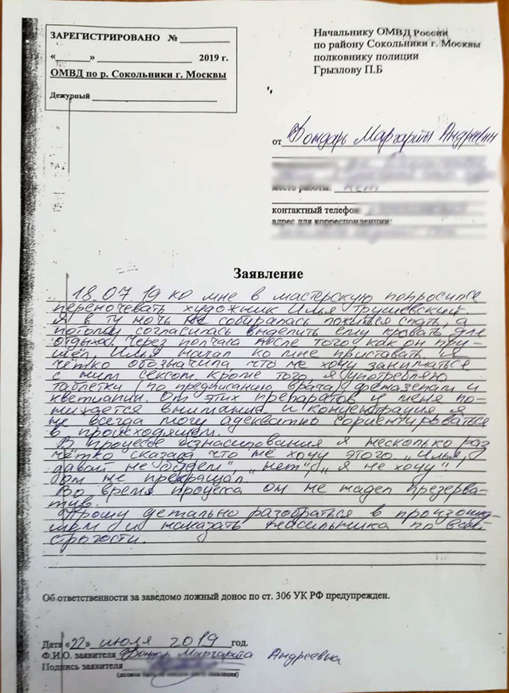 ЗАРЕГИСТРИРОВАНО № 
« » 2019 г.
ОМВД по р. Сокольники г. Москвы
Дежурный
Начальнику ОМВД России
по району Сокольники г. Москвы
полковнику полиции
Грызлову П.Б
от Бондарь Маргариты Андреевны
место работы: нет
контактный телефон
адрес для корреспонденции:
Заявление
18.07.19 ко мне в мастерскую попросился
переночевать художник Илья Трушевский.
Я в ту ночь не собиралась ложиться спать, а
потому согласилась выделить ему кровать для
отдыха. Через полчаса после того как он при-
шел, Илья начал ко мне приставать. Я
четко обозначила что не хочу заниматься
с ним сексом. Кроме того я употребляю
таблетки (по предписанию врача) феназепам и
кветиапин. От этих препаратов у меня по-
нижается внимание и концентрация, я
не всегда могу адекватно сориентироваться
в происходящем.
В процессе изнасилования я несколько раз
четко сказала что не хочу этого „Илья,
давай не будем", „нет", „я не хочу"!
он не прекращал.
Во время процесса он не надел презерва-
тив.
Прошу детально разобраться в произошед-
шем и наказать насильника по всей
строгости.
Об ответственности за заведомо ложный донос по ст. 306 УК РФ предупрежден.
Дата «22» июля 2019 год.
Ф.И.О. заявителя Маргарита Андреевна
Подпись заявителя